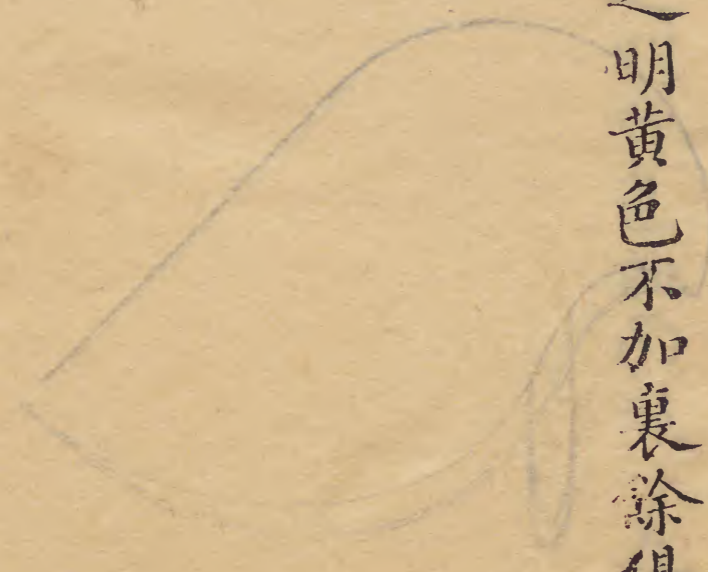 明黃色不加裏餘